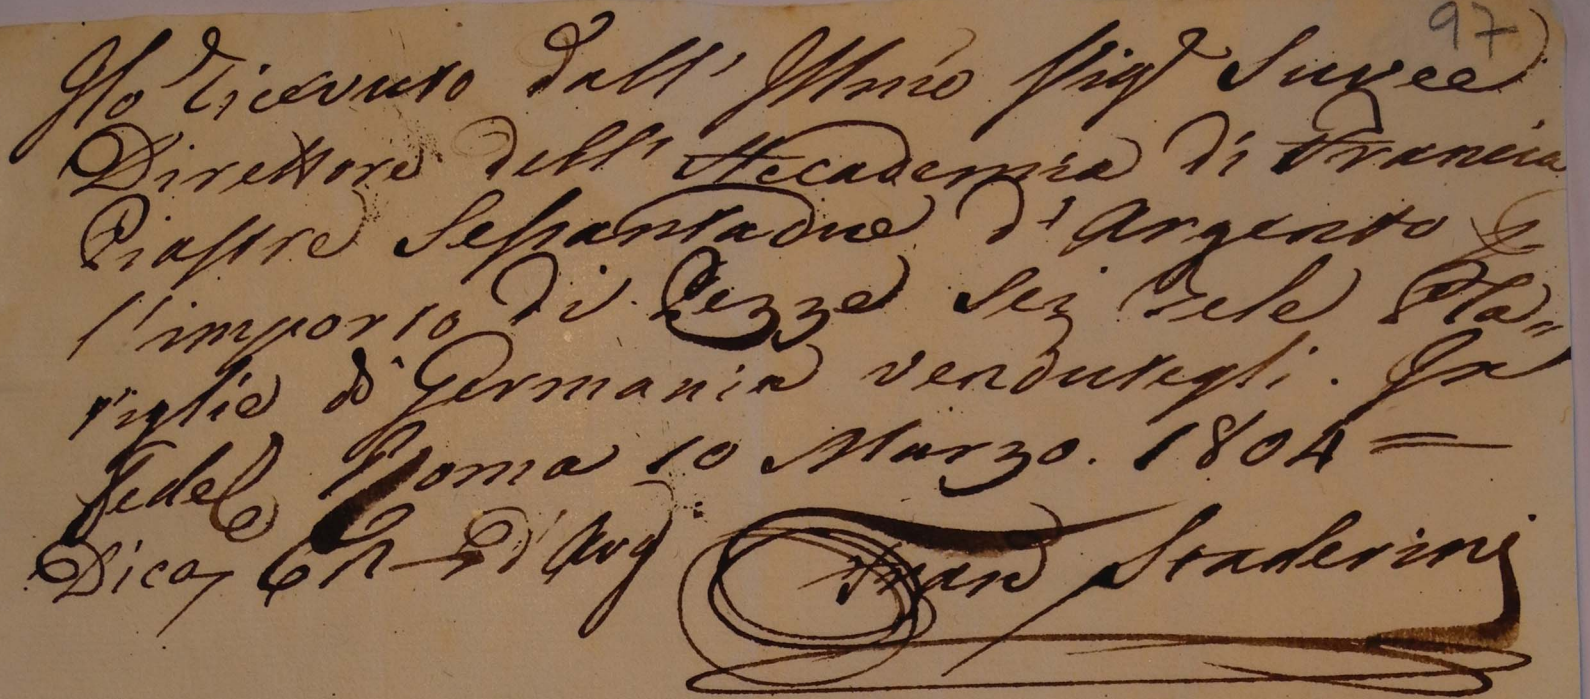 97
Ho ricevuto dall' Illmo Sigr Suvee
Direttore dell' Accademia di Francia
Piastre Sessantadue d'Argento p
l'importo di Pezze Sei Tele Fla=
viglie di Germania vendutegli. In
fede Roma 10 Marzo. 1804 =
Dico 62 – d'Arg
Fran Staderini